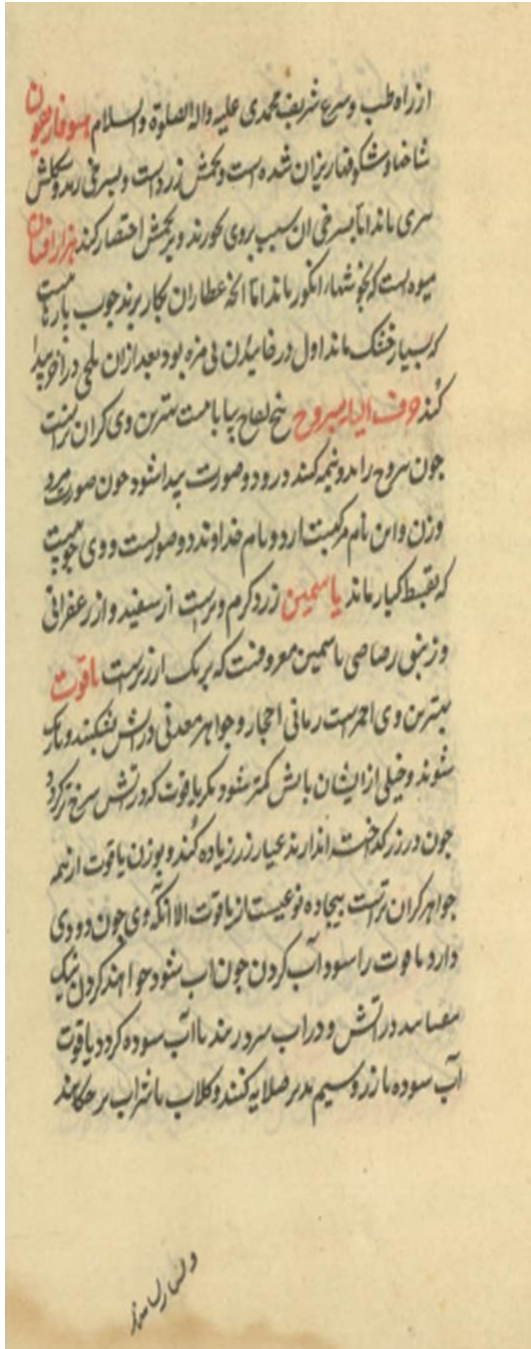 از راه طب و شرع شریف محمدی علیه واله الصلوة والسلام هیوفاریقون
شاخها و شکوفهاریزان شده است و تخمش زرد است و بسرخی زند و شکلش
سری ماند اما بسرخی ان سبب بروی خورند و بر تخمش اختصار کنند هزارافشان
میوه است که بخوشهاء انکور ماند اما انچه عطاران بکار برند چوب پارهاست
که بسیار خشک ماند اول در خاییدن بی مزه بود بعد ازان تلخی در اخر پیدا
کند حرف الیا یبروح بیخ لفاح بیابانیست بهترین وی کران رانست
چون یبروح را بدو نیمه کنند درو دو صورت پیدا شود چون صورت مرد
وزن و این نام مرکبست از دو نام خداوند دو صورتست و وی چوبیست
که بقسط کبار ماند یاسمین زرد کرم و تر است از سفید و از زعفرانی
و زنبق رصاصی یاسمین معروفست که بر یک ارز تر است یاقوت
بهترین وی احمر است رمانی احجار و جواهر معدنی در اتش بشکنند و تاریک
شوند و خیلی از ایشان باتش کمتر شود مکر یاقوت که در اتش سرخ تر کردد
چون در زر کداخته اندازند عیار زر زیاده کند و بوزن یاقوت از همه
جواهر کران تر است بیجاده نوعیست از یاقوت الا انکه وی چون دودی
دارد یاقوت را سوده آب کردن چون اب شود خواهند کردن نیک
در اتش و در اب سرد ریزند تا آب سوده کردد یاقوت
آب سوده با زر و سیم صلایه کنند و کلاب یا شراب بر چکانند